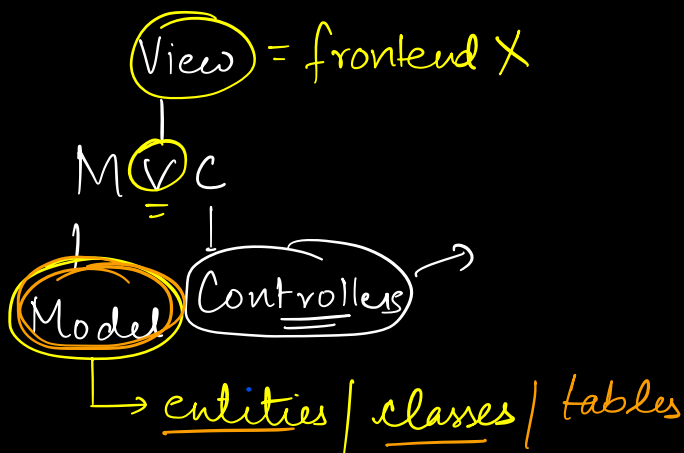 View = frontend X
M V C
Model Controllers
entities / classes / tables